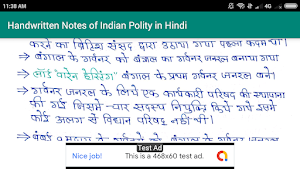 11:38 AM
4G
Handwritten Notes of Indian Polity in Hindi
करने का ब्रिटिश संसद द्वारा उठाया गया पहला कदम था।
⇒ बंगाल के गवर्नर को बंगाल का गवर्नर जनरल बनाया गया
⇒ लार्ड वारेन हेस्टिंग्स बंगाल के प्रथम गवर्नर जनरल बने।
⇒ गवर्नर जनरल के लिए एक कार्यकारी परिषद की स्थापना
की गई जिसमें चार सदस्य नियुक्त किये गये इसमें
कोई अलग से विधान परिषद नहीं थी।
⇒ बंबई
Test Ad
Nice job! This is a 468x60 test ad.